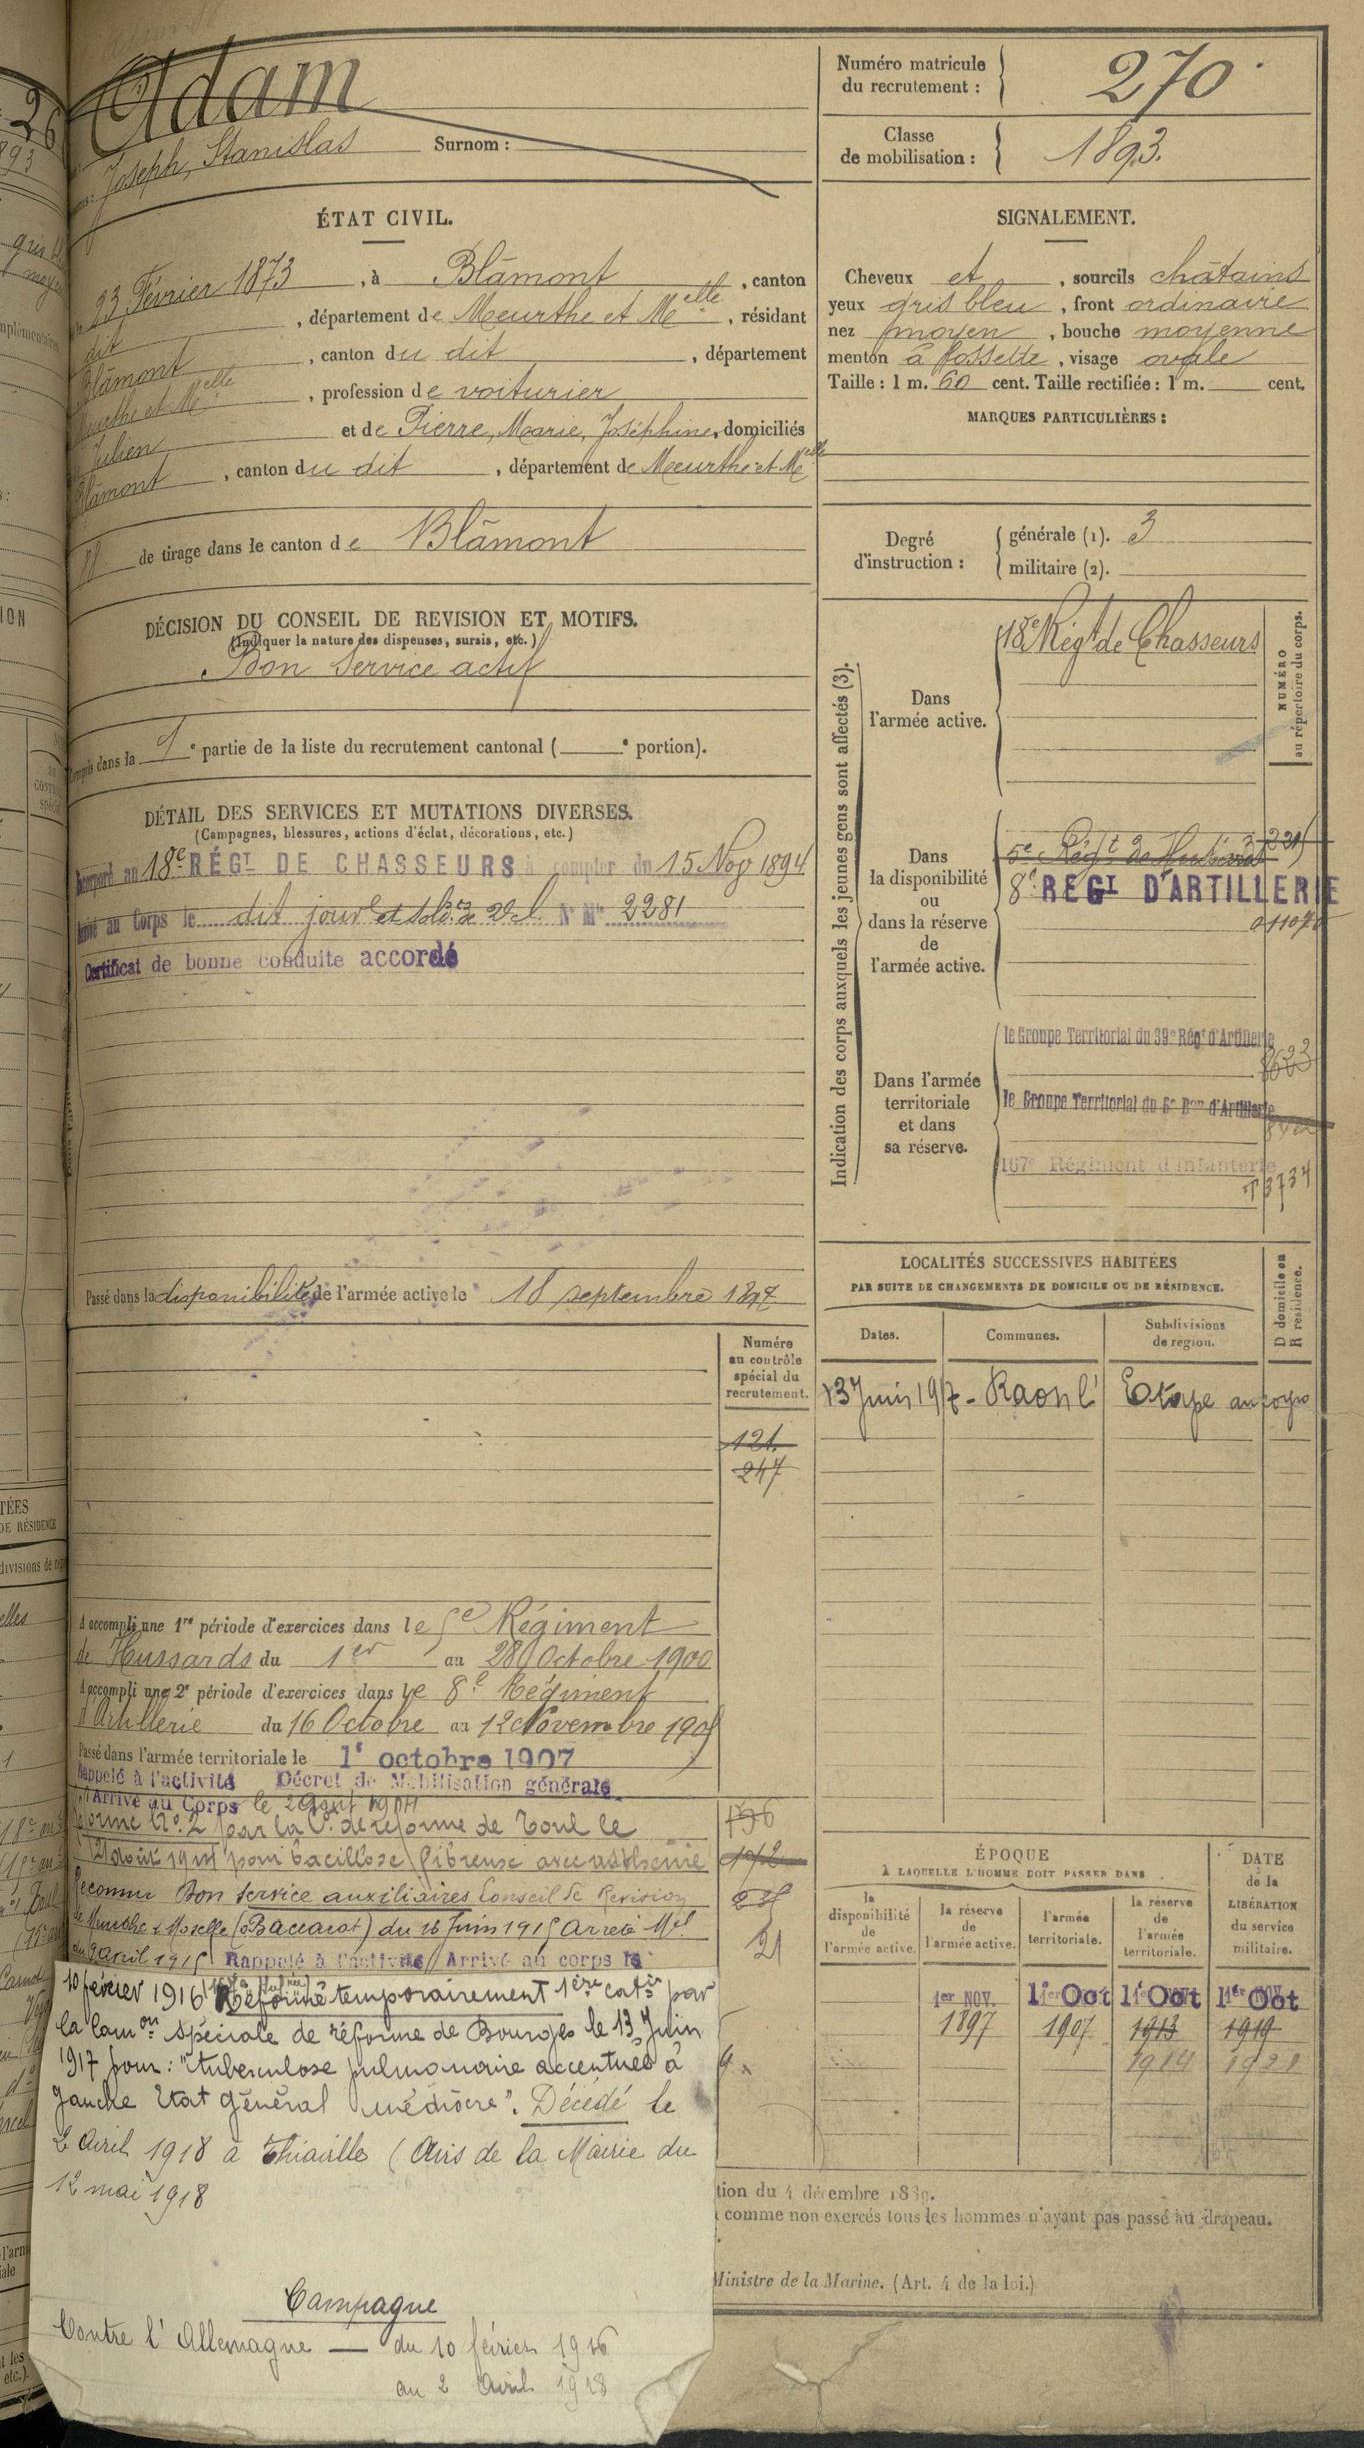 Adam
Joseph, Stanislas Surnom :
Numéro matricule du recrutement : 270
Classe de mobilisation : 1893.
ÉTAT CIVIL.
23 Février 1873, à Blâmont, canton
dit, département de Meurthe et Melle, résidant
Blâmont, canton du dit, département
Meurthe et Melle, profession de voiturier
Julien et de Pierre, Marie, Joséphine, domiciliés
Blâmont, canton du dit, département de Meurthe et Melle
de tirage dans le canton de Blâmont
DÉCISION DU CONSEIL DE REVISION ET MOTIFS.
(Indiquer la nature des dispenses, sursis, etc.)
Bon Service actif
Compris dans la 1e partie de la liste du recrutement cantonal ( e portion).
DÉTAIL DES SERVICES ET MUTATIONS DIVERSES.
(Campagnes, blessures, actions d'éclat, décorations, etc.)
Incorporé au 18e RÉGT DE CHASSEURS à compter du 15 Nov 1894
Arrivé au Corps le dit jour et Soldat de 2e cl. No Mle 2281
Certificat de bonne conduite accordé
Passé dans la disponibilité de l'armée active le 18 septembre 1897
Numéro au contrôle spécial du recrutement.
121
247
A accompli une 1re période d'exercices dans le 5e Régiment
de Hussards du 1er au 28 Octobre 1900
A accompli une 2e période d'exercices dans le 8e Régiment
d'Artillerie du 16 Octobre au 12 Novembre 1905
Passé dans l'armée territoriale le 1er octobre 1907
Rappelé à l'activité Décret de Mobilisation générale
Arrivé au Corps le 2 Aout 1914
Réforme No 2 par la C. de réforme de Toul le
21 août 1914 pour bacillose fibreuse avec asthénie
Reconnu Bon service auxiliaires Conseil de Revision
de Meurthe & Moselle (Baccarat) du 16 Juin 1915 Arreté Mel
du 9 avril 1915 Rappelé à l'activité Arrivé au corps le
21
10 février 1916 Réformé temporairement 1ère catie par
la Comon Spéciale de réforme de Bourges le 13 Juin
1917 pour : "tuberculose pulmonaire accentuée à
gauche Etat général médiocre". Décédé le
2 Avril 1918 à Thiaville (Avis de la Mairie du
12 mai 1918
Campagne
Contre l'Allemagne — du 10 février 1916
au 2 Avril 1918
SIGNALEMENT.
Cheveux et, sourcils châtains
yeux gris bleu, front ordinaire
nez moyen, bouche moyenne
menton à fossette, visage ovale
Taille : 1 m. 60 cent. Taille rectifiée : 1 m. cent.
MARQUES PARTICULIÈRES :
Degré d'instruction : générale (1). 3
militaire (2).
Indication des corps auxquels les jeunes gens sont affectés (3).
NUMÉRO au répertoire du corps.
Dans l'armée active.
18e Régt de Chasseurs
Dans la disponibilité ou dans la réserve de l'armée active.
5e Régt de Hussards
8e REGT D'ARTILLERIE
Dans l'armée territoriale et dans sa réserve.
le Groupe Territorial du 39e Régt d'Artillerie
le Groupe Territorial du 6e Bon d'Artillerie
167e Régiment d'infanterie
T 3734
LOCALITÉS SUCCESSIVES HABITÉES
PAR SUITE DE CHANGEMENTS DE DOMICILE OU DE RÉSIDENCE.
D domicile ou R résidence.
Dates. Communes. Subdivisions de région.
13 Juin 1917 - Raon l' Etape
ÉPOQUE
À LAQUELLE L'HOMME DOIT PASSER DANS
DATE de la LIBÉRATION du service militaire.
la disponibilité de l'armée active.
la réserve de l'armée active.
l'armée territoriale.
la réserve de l'armée territoriale.
1er NOV. 1er Oct 1er Oct 1er Oct
1897 1907 1913 1919
1914 1921
tion du 4 décembre 1889.
comme non exercés tous les hommes n'ayant pas passé au drapeau.
Ministre de la Marine. (Art. 4 de la loi.)